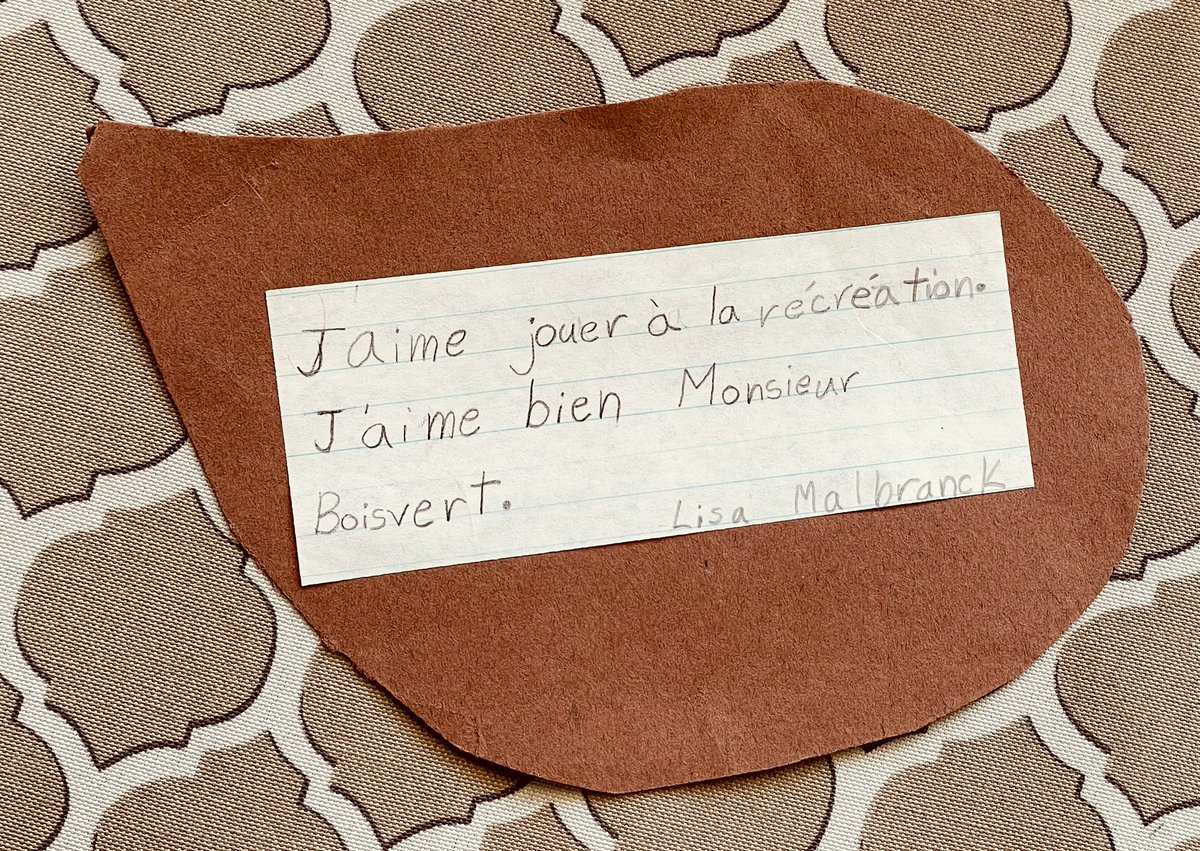 J'aime jouer à la récréation.
J'aime bien Monsieur
Boisvert.
Lisa Malbranck